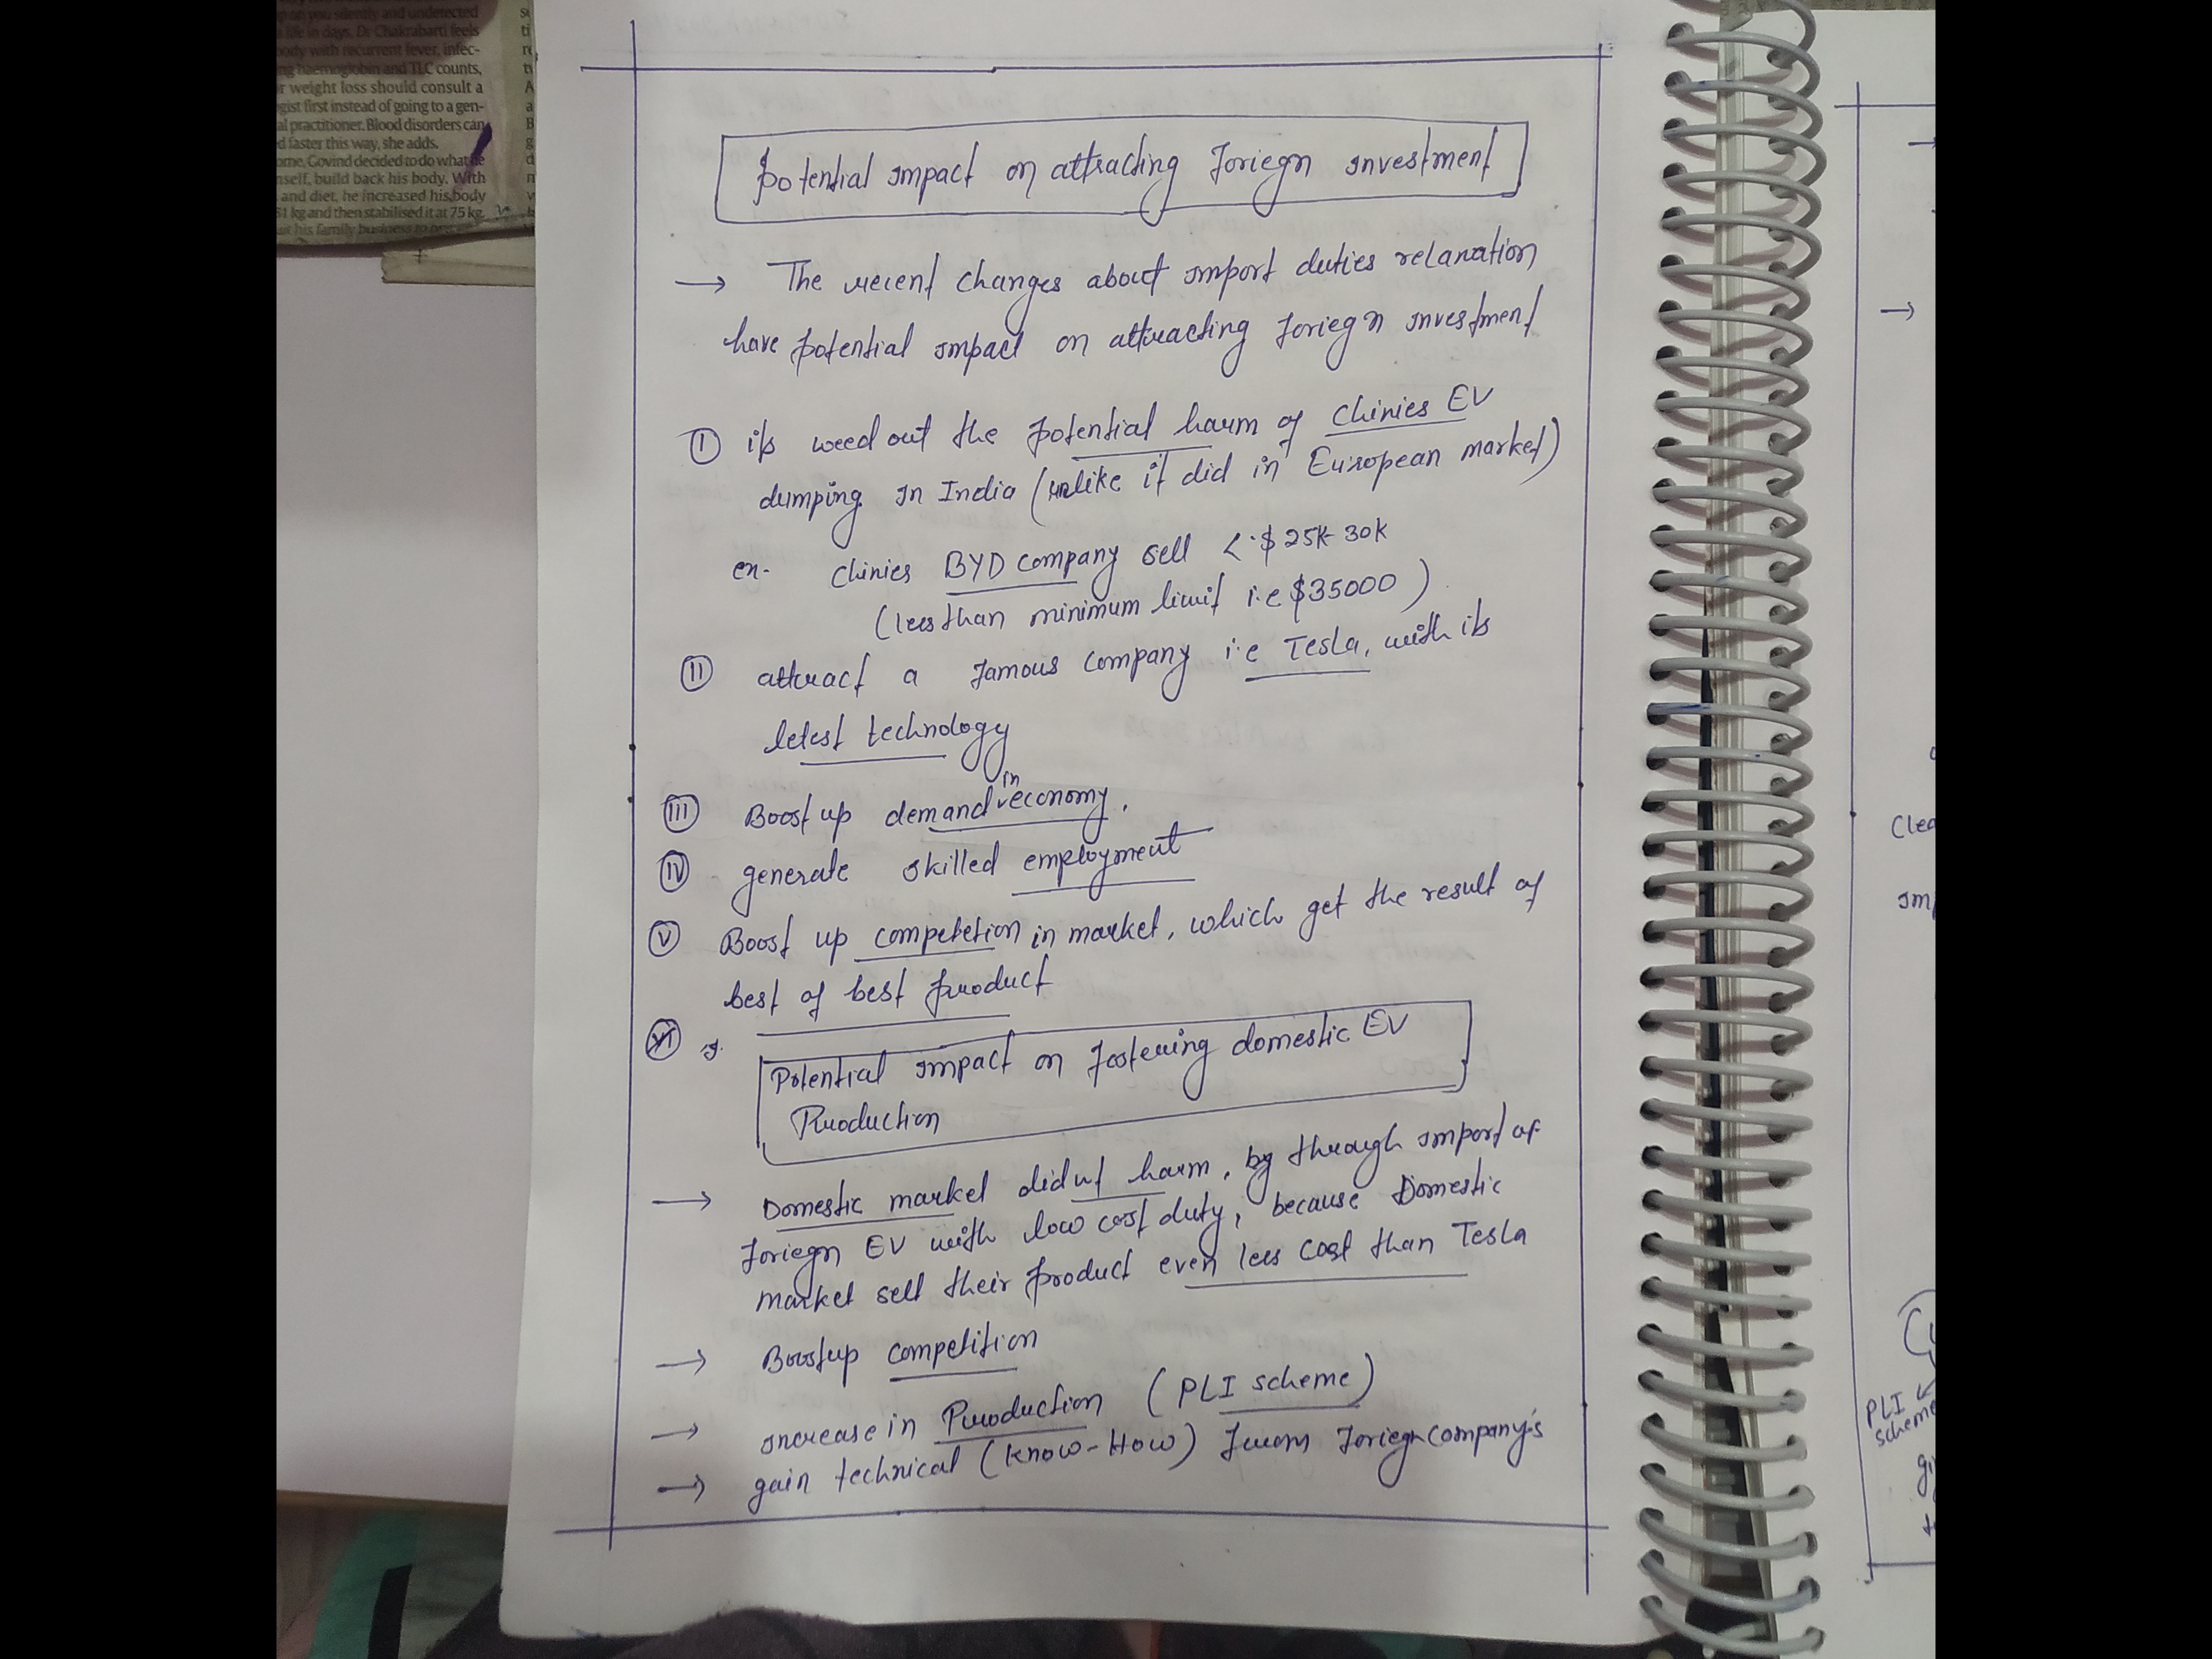 p on you silently and undetected
life in days. Dr Chakrabarti feels
ody with recurrent fever, infec-
ng haemoglobin and TLC counts,
r weight loss should consult a
gist first instead of going to a gen-
al practitioner. Blood disorders can
d faster this way, she adds.
ome, Govind decided to do what he
nself, build back his body. With
and diet, he increased his body
51 kg and then stabilised it at 75 kg.
his family business to
Potential Impact on attracting Foriegn investment
→ The recent changes about import duties relaxation
have potential impact on attracting foriegn investment
I its weed out the potential harm of Chinies EV
dumping in India (unlike it did in European market)
ex- Chinies BYD company sell < $ 25k-30k
(less than minimum limit i.e $35000)
II attract a famous company i.e Tesla, with its
letest technology
III Boost up demand in economy.
IV generate skilled employment
V Boost up competetion in market, which get the result of
best of best product
VI
Potential impact on fostering domestic EV
Production
→ Domestic market didn't harm, by through import of
foriegn EV with low cost duty, because Domestic
market sell their product even less cost than Tesla
→ Boostup competition
→ increase in Production (PLI scheme)
→ gain technical (Know-How) from foriegn company's
→
→
Clea
Imp
PLI
scheme